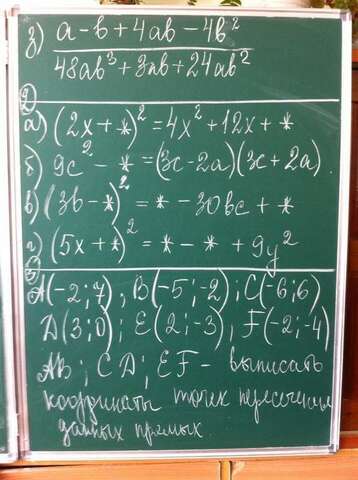 з) a-b+4ab-4b²
48ab³+3ab+24ab²
②
а) (2x+*)²=4x²+12x+*
б) 9c²-*=(3c-2a)(3c+2a)
в) (3b-*)²=*-30bc+*
г) (5x+*)²=*-*+9y²
③
A(-2;7); B(-5;-2); C(-6;6)
D(3;0); E(2;-3); F(-2;-4)
AB; CD; EF- выписать
координаты точек пересечения
данных прямых